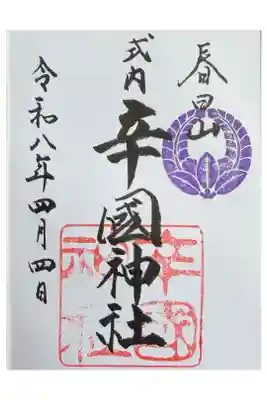 春日山
式内
辛國神社
令和八年四月四日